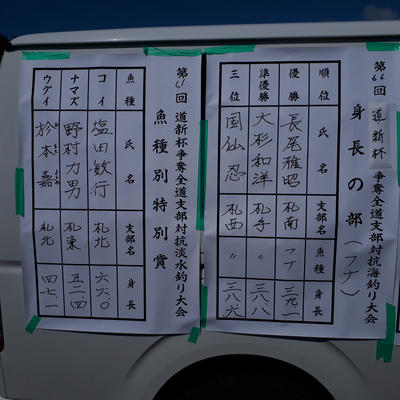 第66回 道新杯 争奪全道支部対抗海釣り大会
身長の部(フナ)
順位 氏名 支部名 魚種 身長
優勝 長尾雅昭 札南 フナ 三九.一
準優勝 大杉和洋 札手 〃 三八.八
三位 国仙忍 札西 〃 三八.六
道新杯争奪全道支部対抗淡水釣り大会
魚種別特別賞
魚種 氏名 支部名 身長
コイ 塩田敏行 札北 六六.〇
ナマズ 野村力男 札東 五二.四
ウグイ 於本嘉 札北 四七.一